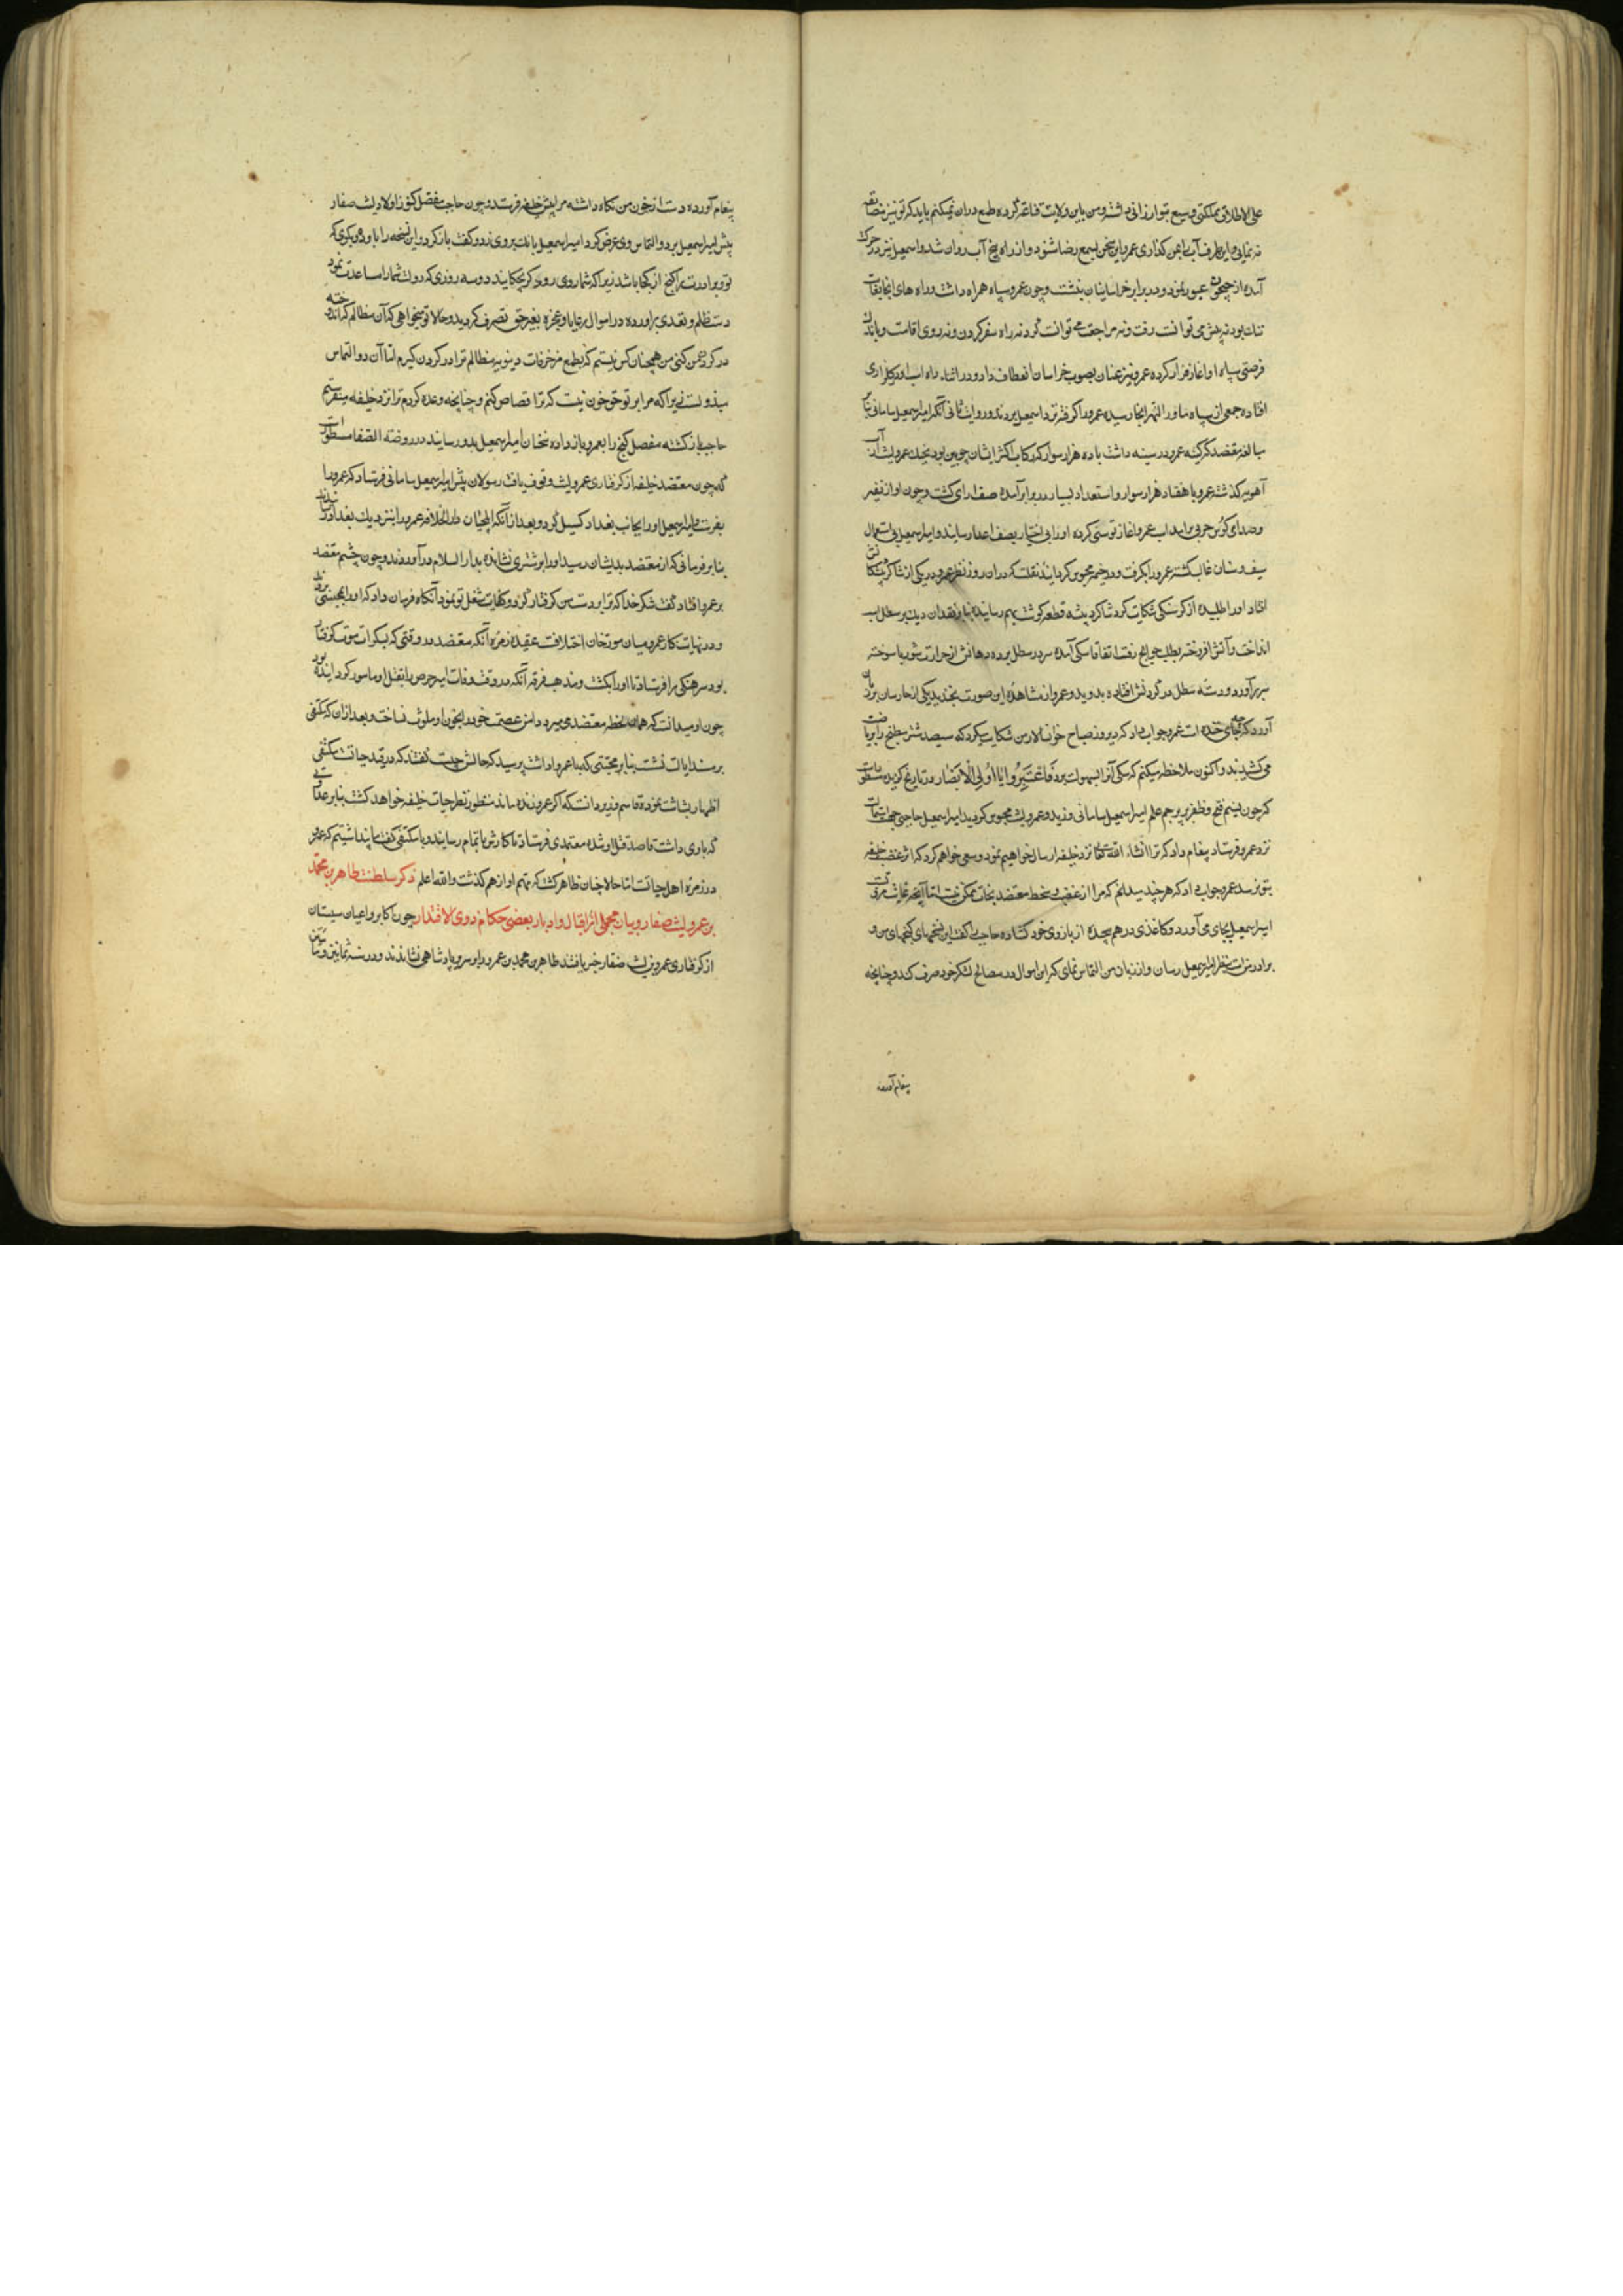 علی الاطلاق مملکتی وسیع بتو ارزانی داشته و من باین ولایت قناعت کرده طمع دران نمیکنم باید که تو نیز مضایقه
نه نمایی و این طرف آب بمن گذاری عمرو این سخن بسمع رضا نشنود و از راه بلخ آب روان شد و اسمعیل نیز در حرکت
آمده از جیحون عبور نمود و در برابر خراسانیان بنشست و چون عمرو سپاه همراه داشت و راه های انجا بغایت
تنک بود نه پیش می توانست رفت و نه مراجعت می توانست کرد نه راه سفر کردن و نه روی اقامت و باندک
فرصتی سپاه او اغاز فرار کرده عمرو نیز عنان بصوب خراسان انعطاف داد و در اثناء راه اسب او در کلزاری
افتاده جمعی از سپاه ماوراالنهر انجا رسیده عمرو را کرفته نزد اسمعیل بردند و روایت ثانی آنکه امیر اسمعیل سامانی بنابر
مبالغه معتضد که کینه عمرو در سینه داشت با ده هزار سوار که رکاب اکثر ایشان چوبین بود بجنک عمرو لیث از آب
آمویه کذشته عمرو با هفتاد هزار سوار و استعداد بسیار در برابر آمده صف ارای کشت و چون اواز نفیر
و صدای کوس حربی برامد اسب عمرو اغاز توسنی کرده او را بی اختیار بصف اعدا رسانید و امیر اسمعیل بی استعمال
سیف و سنان غالب کشته عمرو را بکرفت و در خیمه محبوس کردانید نقلست که دران روز نظر عمرو در یکی از شاکرد پیشکانش
افتاد او را طلبیده از کرسنکی شکایت کرد شاکرد پیشه قطعه کوشت بهم رسانیده بنا بر فقدان دیک بر سطل اسب
انداخت و آتش افروخته بطلب حوایج رفت اتفاقا سکی آمده سر در سطل برده دهانش از حرارت شوربا سوخته
سر برآورد و دسته سطل در کردنش افتاده بدوید و عمرو از مشاهده این صورت بخندید یکی از حارسان بر زبان
آورد که چه جای خنده است عمرو جواب داد که دیروز صباح خوانسالار من شکایت میکرد که سیصد شتر مطبخ را بریاضت
می کشیدند و اکنون ملاحظه میکنم که سکی آنرا بسهولت برد فَاعْتَبِرُوا یَا اُولِی الْاَبْصَار در تاریخ کزیده مسطورست
که چون نسیم فتح و ظفر بر پرچم علم امیر اسمعیل سامانی وزید و عمرو لیث محبوس کردید امیر اسمعیل حاجبی جهت استمالت
نزد عمرو فرستاد پیغام داد که ترا انشاء الله تعالی نزد خلیفه ارسال خواهیم نمود و سعی خواهم کرد که اثر غضب خلیفه
بتو نرسد عمرو جواب داد که هرچند میدانم که مرا از غضب و سخط معتضد نجات ممکن نیست اما آنچه غایت مروتست
امیر اسمعیل بجای می آورد و کاغذی درهم پیچیده از بازوی خود کشاده حاجب را کفت این نسخهای کنجهای من و
برادرنست بنظر امیر اسمعیل رسان و از زبان من التماس نمای که این اموال در مصالح لشکر خود صرف کند و چنانچه
پیغام آورده
پیغام آورده دست از خون من نکاه داشته مرا پیش خلیفه فرستد و چون حاجب مفصل کنوز اولاد لیث صفار
پیش امیر اسمعیل برد و التماس وی عرض کرد امیر اسمعیل بانک بروی زد و کفت باز کرد و این نسخه را باو ده و بکوی که
تو و برادرت را کنج از کجا باشد زیرا که شما روی روی کر بچکانید دو سه روزی که دولت شما را مساعدت نمود
دست ظلم و تعدی براورده در اموال رعایا و عجزه بغیر حق تصرف کردید و حالا تو میخواهی که آن مظالم که اندوخته
در کردن من کنی من همچنان کس نیستم که بطمع مزخرفات دنیویه مظالم ترا در کردن کیرم اما آن دو التماس
مبذولست زیرا که مرا بر تو حق خون نیست که ترا قصاص کنم و چنانچه وعده کردم ترا نزد خلیفه میفرستم
حاجب باز کشته مفصل کنج را بعمرو باز داده سخنان امیر اسمعیل بدو رسانید در روضة الصفا مسطورست
که چون معتضد خلیفه از کرفتاری عمرو لیث وقوف یافت رسولان پیش امیر اسمعیل سامانی فرستاد که عمرو را
بفرست و امیر اسمعیل او را بجانب بغداد کسیل کرد و بعد از آنکه ایلچیان دارالخلافه عمرو را بنزدیک بغداد رسانیدند
بنا بر فرمانی که از معتضد بدیشان رسید او را بر شتری نشانده بدار السلام درآوردند و چون چشم معتضد
بر عمرو افتاد کفت شکر خدا که ترا بدست من کرفتار کرد و کفایت شغل تو نمود آنکاه فرمان داد که او را بحبس بردند
و در نهایت کار عمرو میان مورخان اختلافست عقیده زمره آنکه معتضد در وقتی که بسکرات موت کرفتار
بود سرهنکی را فرستاد تا او را بکشت و مذهب فرقه آنکه در وقت وفات امیر حرص را بقتل او مامور کردانیده بود
چون او میدانست که همان لحظه معتضد می میرد دامن عصمت خود را بخون او ملوث نساخت و بعد ازان که مکتفی
بر مسند ایالت نشست بنا بر محبتی که با عمرو داشت پرسید که حالش چیست کفتند که در قید حیاتست مکتفی
اظهار بشاشت نموده قاسم وزیر دانست که اکر عمرو زنده ماند منظور نظر حیات خلیفه خواهد کشت بنا بر عداوتی
که با وی داشت قاصد قتل او شده معتمدی فرستاد تا کارش باتمام رسانید و با مکتفی کفت ما پنداشتیم که عمرو
در زمره اهل حیاتست اما حالا چنان ظاهر کشت که مهم او از هم کذشت و الله اعلم ذکر سلطنت طاهر بن محمد
بن عمرو لیث صفار و بیان مجملی از اقبال و ادبار بعضی حکام ذوی الاقتدار چون اکابر و اعیان سیستان
از کرفتاری عمرو بن لیث صفار خبر یافتند طاهر بن محمد بن عمرو را بر سریر پادشاهی نشاندند و در سنه ثمانین و مائتین